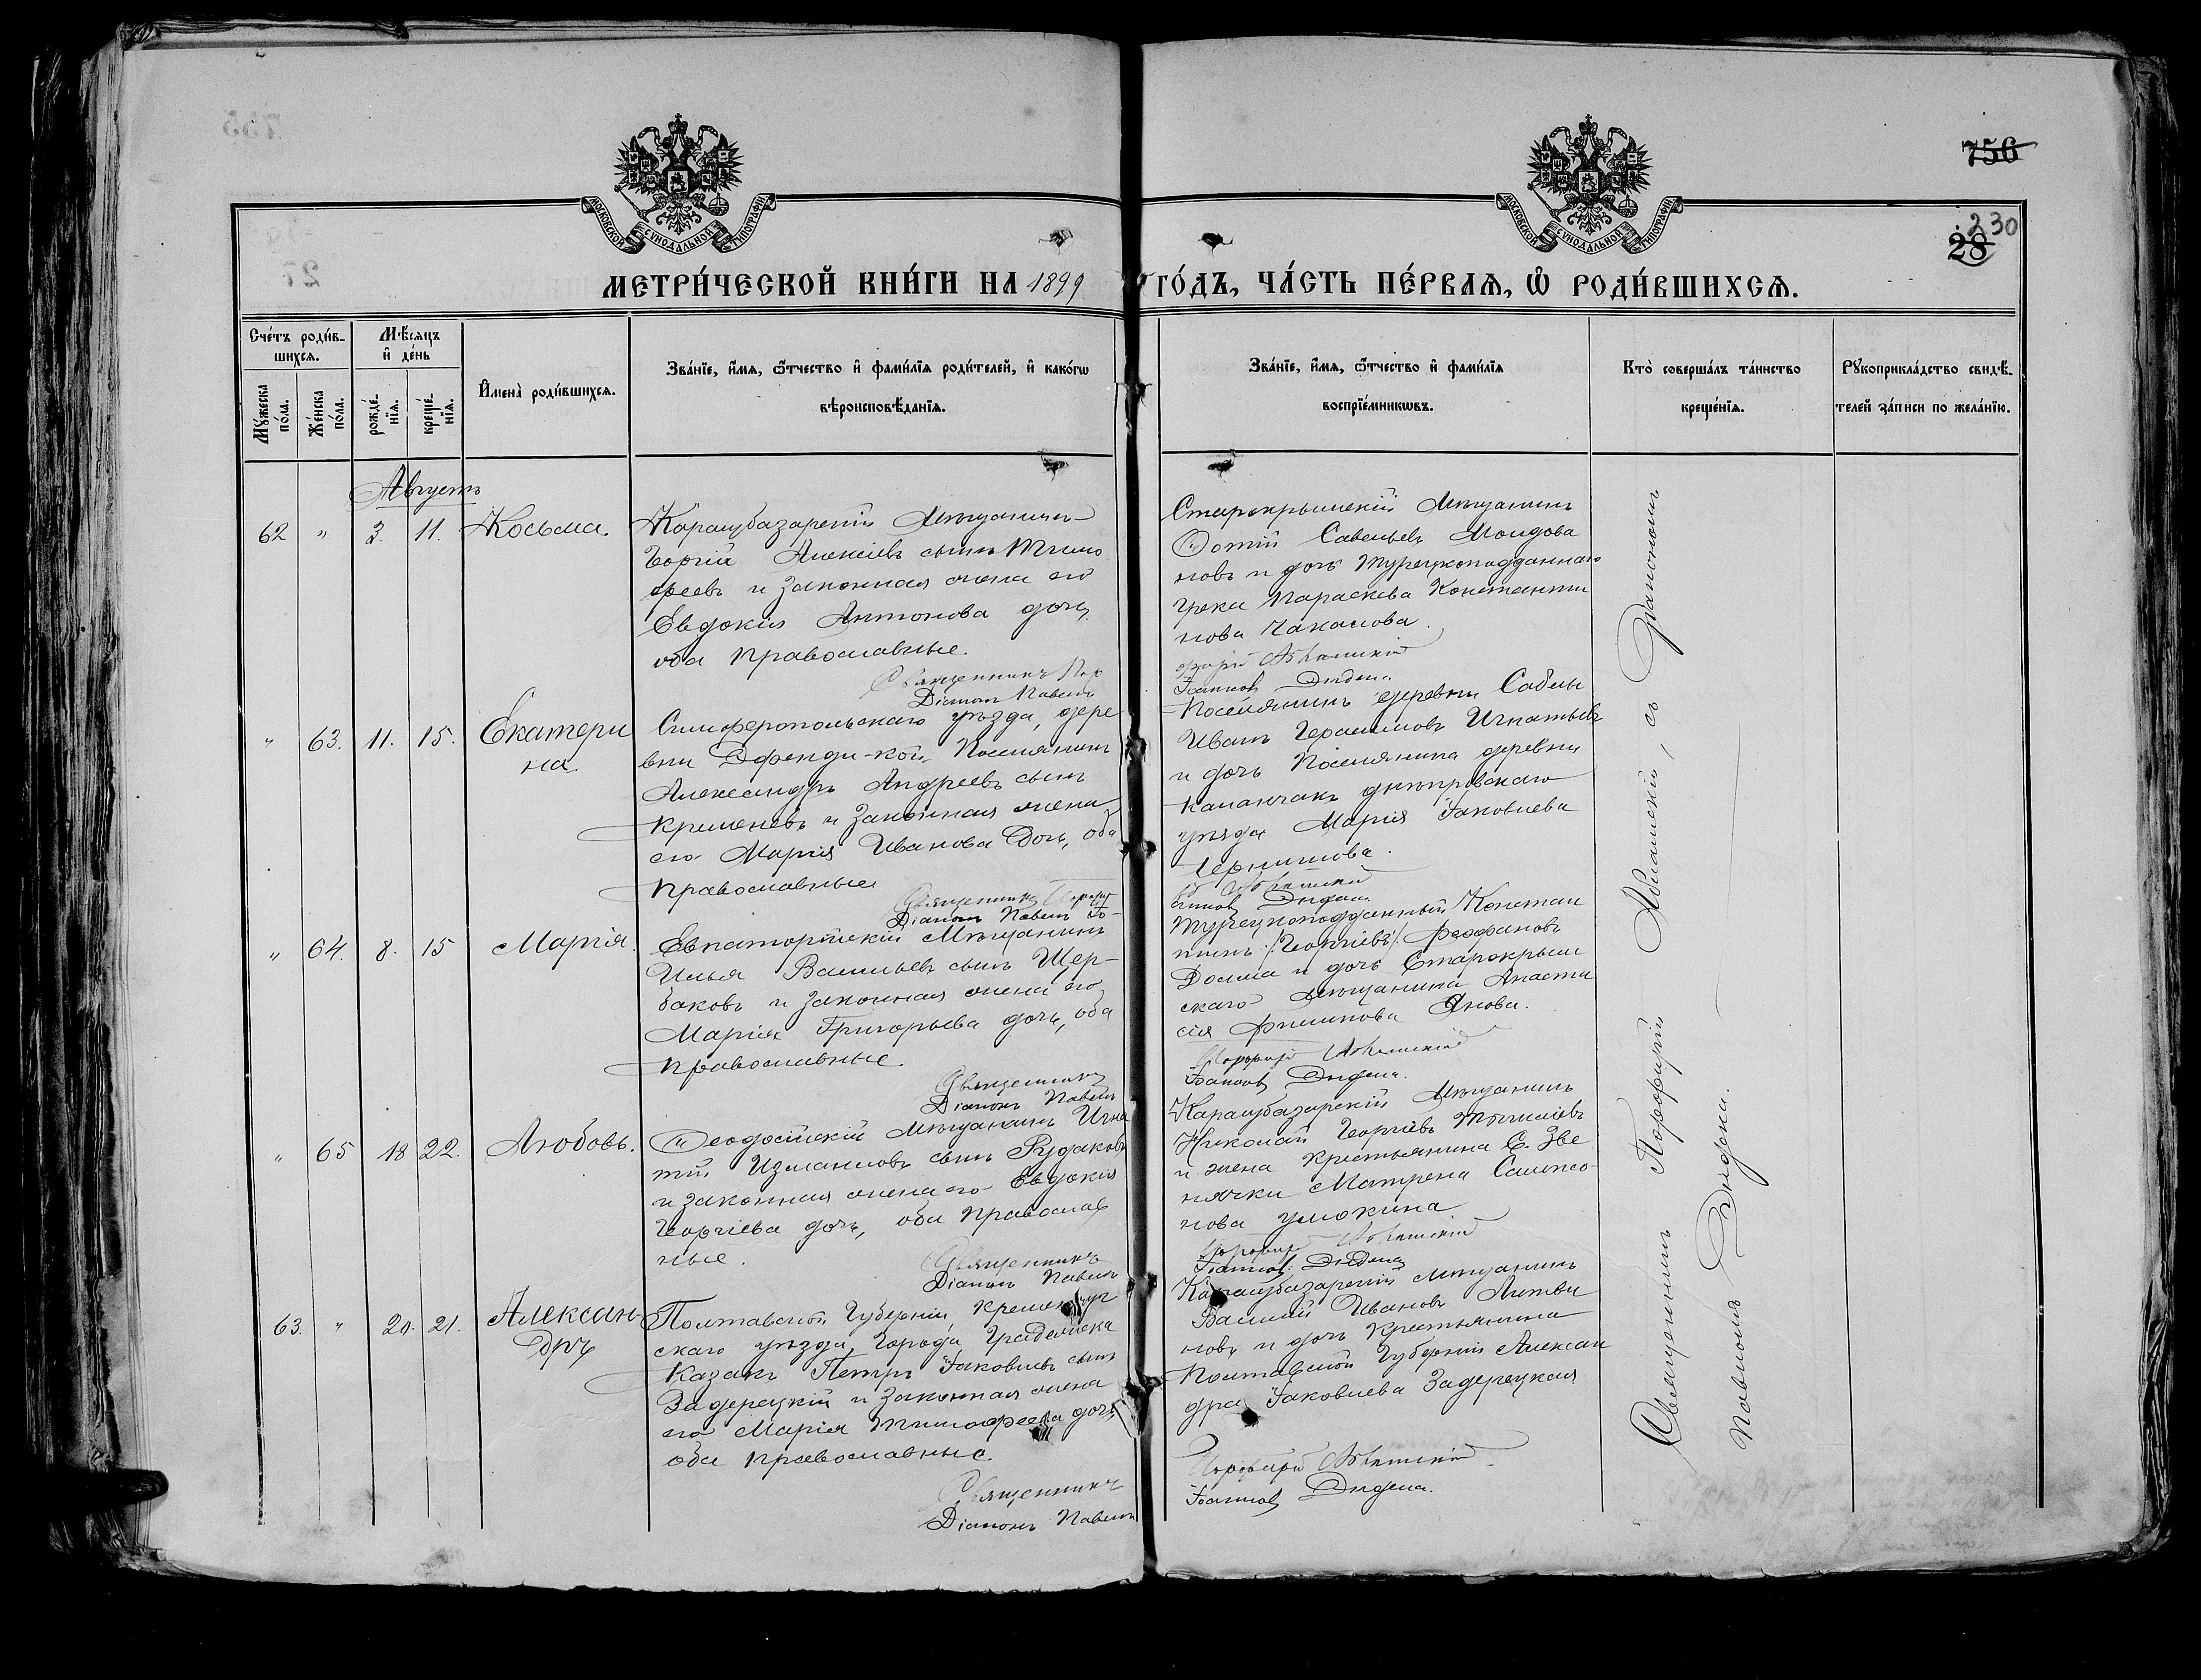 756
230
28
МОСКОВСКОЙ СѴНОДАЛЬНОЙ ТИПОГРАФІИ
МОСКОВСКОЙ СѴНОДАЛЬНОЙ ТИПОГРАФІИ
МЕТРИ́ЧЕСКОЙ КНИ́ГИ НА 1899 ГО́ДЪ, ЧА́СТЬ ПЕ́РВАѦ, Ѡ҆ РОДИ́ВШИХСѦ.
Сче́тъ роди́в-
шихсѧ.
Мꙋ́жеска по́ла.
Же́нска по́ла.
Мѣ́сѧцъ
и҆ де́нь
рожде́-
нїѧ.
креще́-
нїѧ.
И҆мена̀ роди́вшихсѧ.
Зва́нїе, и҆́мѧ, ѻ҆́тчество и҆ фами́лїѧ роди́телей, и҆ како́гѡ
вѣроисповѣ́данїѧ.
Зва́нїе, и҆́мѧ, ѻ҆́тчество и҆ фами́лїѧ
воспрїе́мникѡвъ.
Кто̀ соверша́лъ та́инство
креще́нїѧ.
Рꙋкоприкла́дство свидѣ́-
телей за́писи по жела́нїю.
Августъ
62 " 3. 11. Косьма.
Карасубазарскій Мѣщанинъ
Георгій Алексѣевъ сынъ Тимо
феевъ и законная жена его
Евдокія Антонова дочь,
оба православные.
Священникъ Пор
Діаконъ Павелъ
Старокрымскій Мѣщанинъ
Ѳотій Савельевъ Молдова
новъ и дочь турецкоподданнаго
грека Параскева Константи
нова Чакалова.
фирій
Іоанновъ Диденко
" 63. 11. 15. Екатери
на.
Симферопольскаго уѣзда, дере
вни Эфенди-кой, Поселянинъ
Александръ Андреевъ сынъ
Кременевъ и законная жена
его Марія Иванова дочь, оба
православные
Священникъ
Діаконъ Павелъ Іо-
Поселянинъ деревни Саблы
Иванъ Герасимовъ Игнатьевъ
и дочь поселянина деревни
Каланчакъ днѣпровскаго
уѣзда Марія Іаковлева
" 64. 8. 15 Марія.
Евпаторійскій Мѣщанинъ
Илья Васильевъ сынъ Щер-
баковъ и законная жена его
Марія Григорьева дочь, оба
православные.
Священникъ
Діаконъ Павелъ
Турецкоподданный Констан
тинъ /Георгіевъ/. Феофановъ
и дочь Старокрым
скаго мѣщанина Анаста
сія Филипова Янова.
Порфирій
Іоанновъ
" 65 18 22. Любовь.
Ѳеодосійскій Мѣщанинъ Игна
тій Измаиловъ сынъ Рудаковъ
и законная жена его Евдокія
Георгіева дочь, оба православ
ные.
Священникъ
Діаконъ Павелъ
Карасубазарскій Мѣщанинъ
Николай Георгіевъ
и жена крестьянина С. Зве
нячки Матрена Самсо-
нова
Порфирій
Іоанновъ
63. " 20. 21. Алексан-
дръ
Полтавской Губерніи, Кременчуг
скаго уѣзда, города Градижска
Казакъ Петръ Іаковлевъ сынъ
Задерецкій и законная жена
его Марія Тимофеева дочь,
оба православные.
Священникъ
Діаконъ Павелъ
Карасубазарскій мѣщанинъ
Василій Ивановъ Литви
новъ и дочь крестьянина
Полтавской Губерніи Алексан
дра Іаковлева Задерецкая
Порфирій
Іоанновъ
Священникъ Порфирій съ Діакономъ
Павломъ